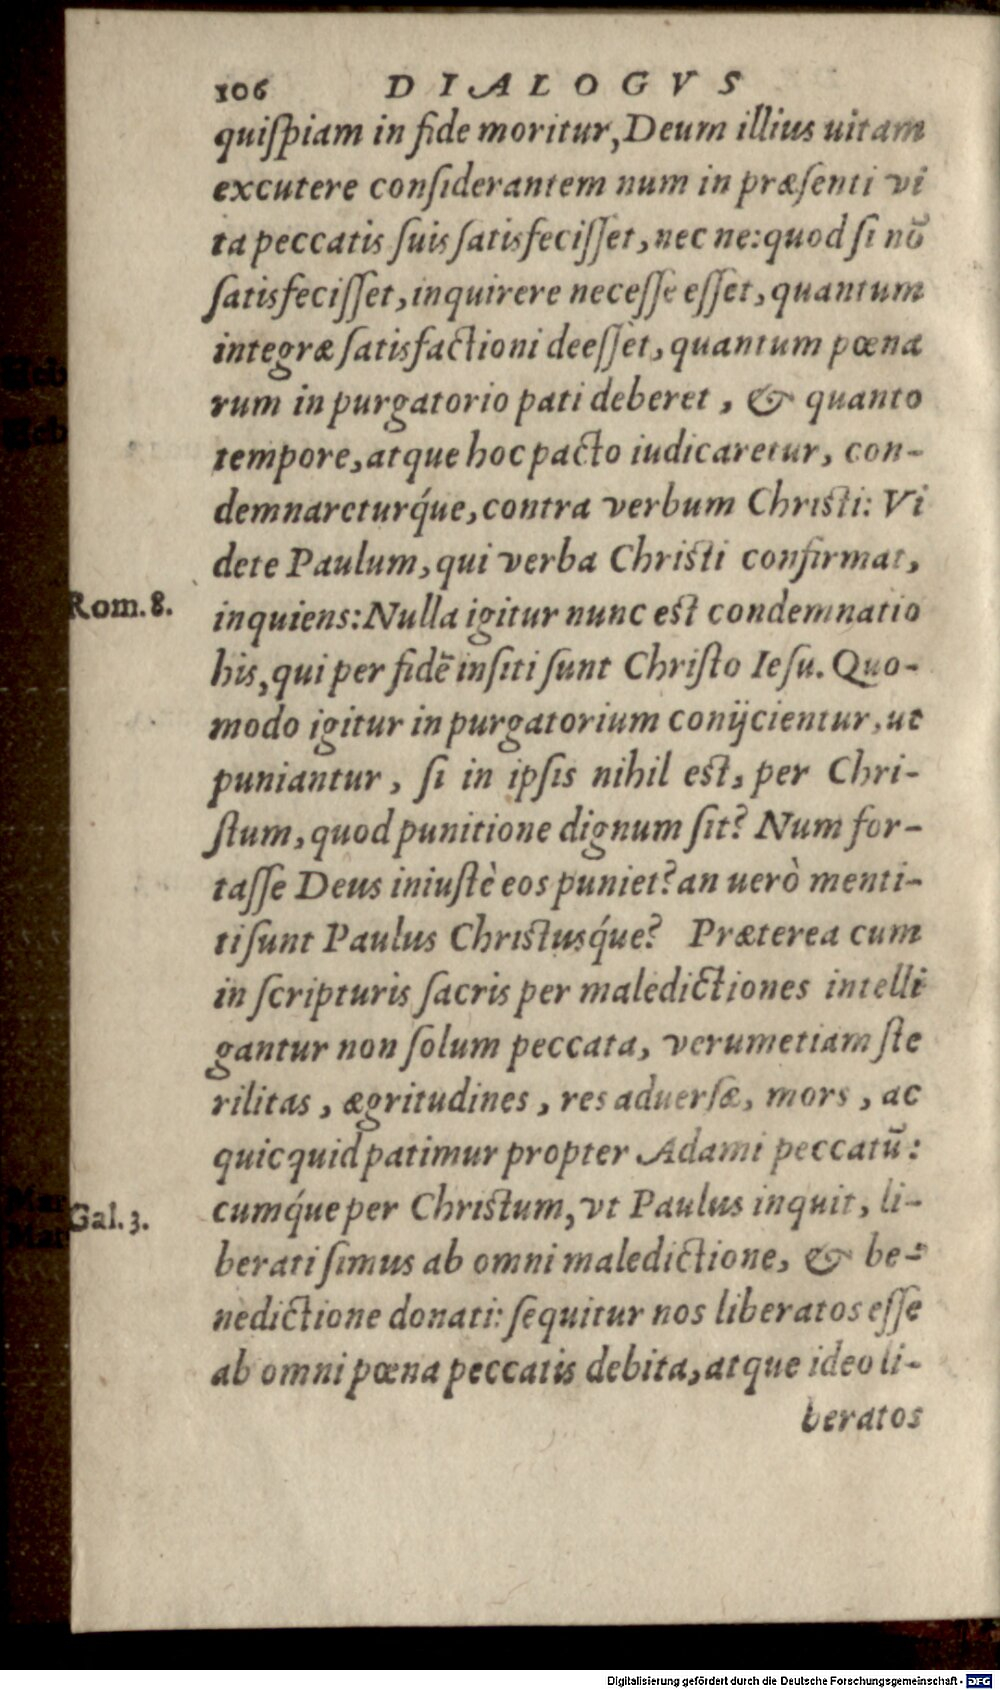 106 DIALOGVS
quiſpiam in fide moritur, Deum illius uitam
excutere conſiderantem num in præſenti vi
ta peccatis ſuis ſatisfeciſſet, nec ne: quod ſi nõ
ſatisfeciſſet, inquirere neceſſe eſſet, quantum
integræ ſatisfactioni deeſſet, quantum pœna
rum in purgatorio pati deberet, & quanto
tempore, atque hoc pacto iudicaretur, con-
demnareturq́ue, contra verbum Chriſti: Vi
dete Paulum, qui verba Chriſti confirmat,
Rom. 8.
inquiens: Nulla igitur nunc eſt condemnatio
his, qui per fidē inſiti ſunt Chriſto Ieſu. Quo-
modo igitur in purgatorium conijcientur, ut
puniantur, ſi in ipſis nihil eſt, per Chri-
ſtum, quod punitione dignum ſit? Num for-
taſſe Deus iniuſtè eos puniet? an uerò menti-
ti ſunt Paulus Chriſtusq́ue? Præterea cum
in ſcripturis ſacris per maledictiones intelli
gantur non ſolum peccata, verumetiam ſte
rilitas, ægritudines, res aduerſæ, mors, ac
quicquid patimur propter Adami peccatū:
Gal. 3.
cumq́ue per Chriſtum, vt Paulus inquit, li-
berati ſimus ab omni maledictione, & be-
nedictione donati: ſequitur nos liberatos eſſe
ab omni pœna peccatis debita, atque ideo li-
beratos
Digitalisierung gefördert durch die Deutsche Forschungsgemeinschaft - DFG